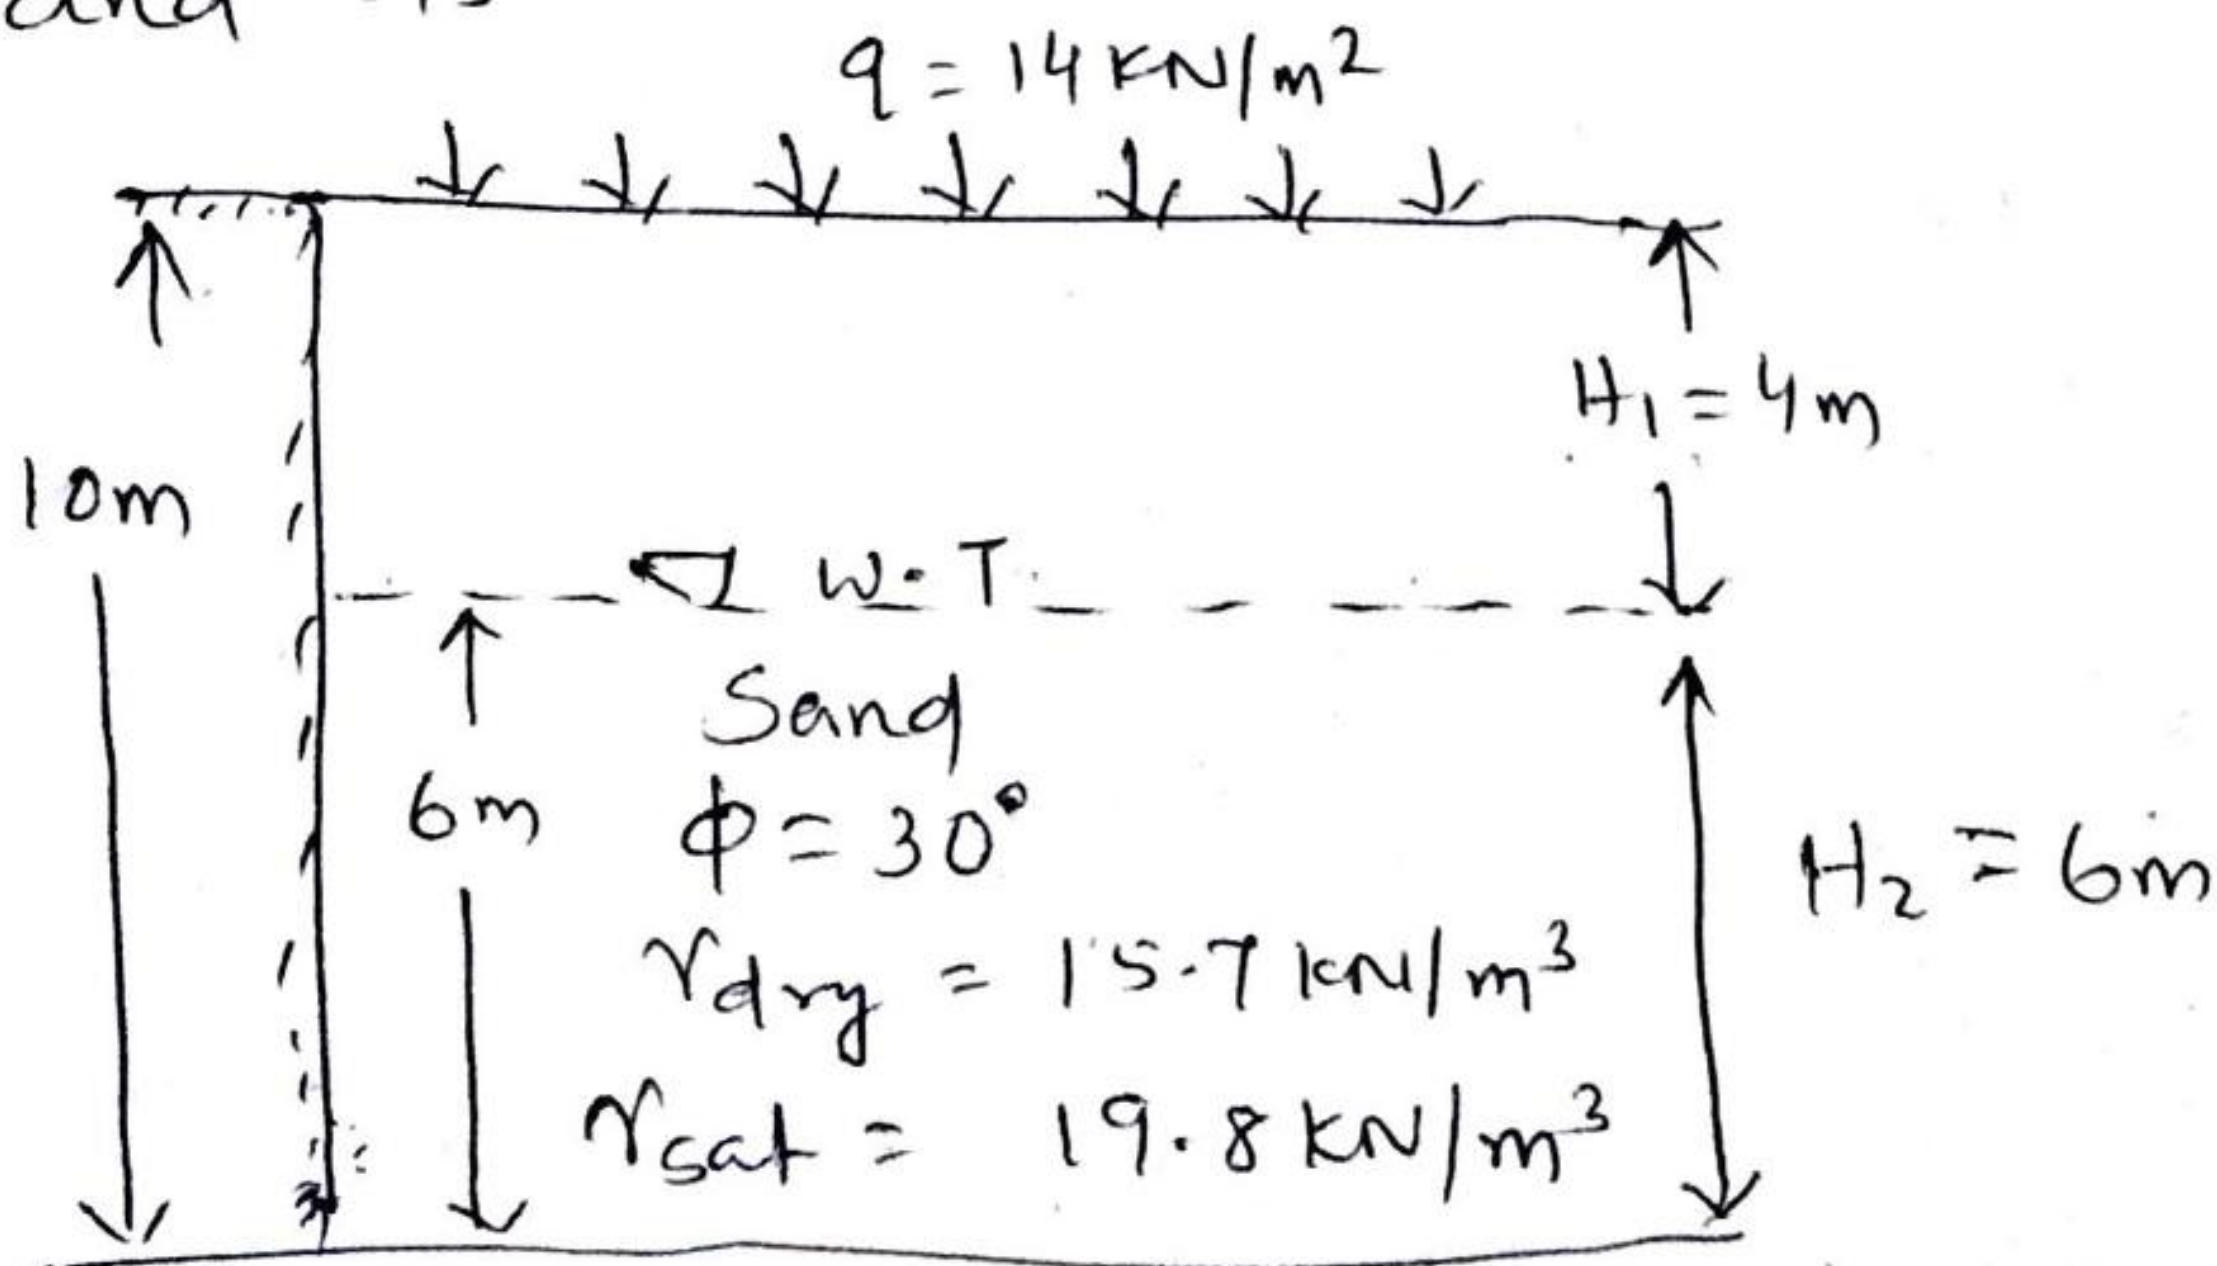 and
q = 14 KN/m²
H₁ = 4m
10m
W.T.
Sand
6m
ϕ = 30°
H₂ = 6m
γdry = 15.7 KN/m³
γsat = 19.8 KN/m³